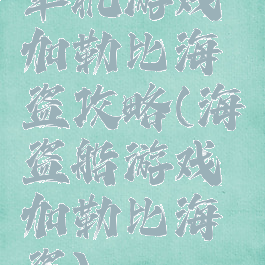 单机游戏
加勒比海
盗攻略(海
盗船游戏
加勒比海
盗)